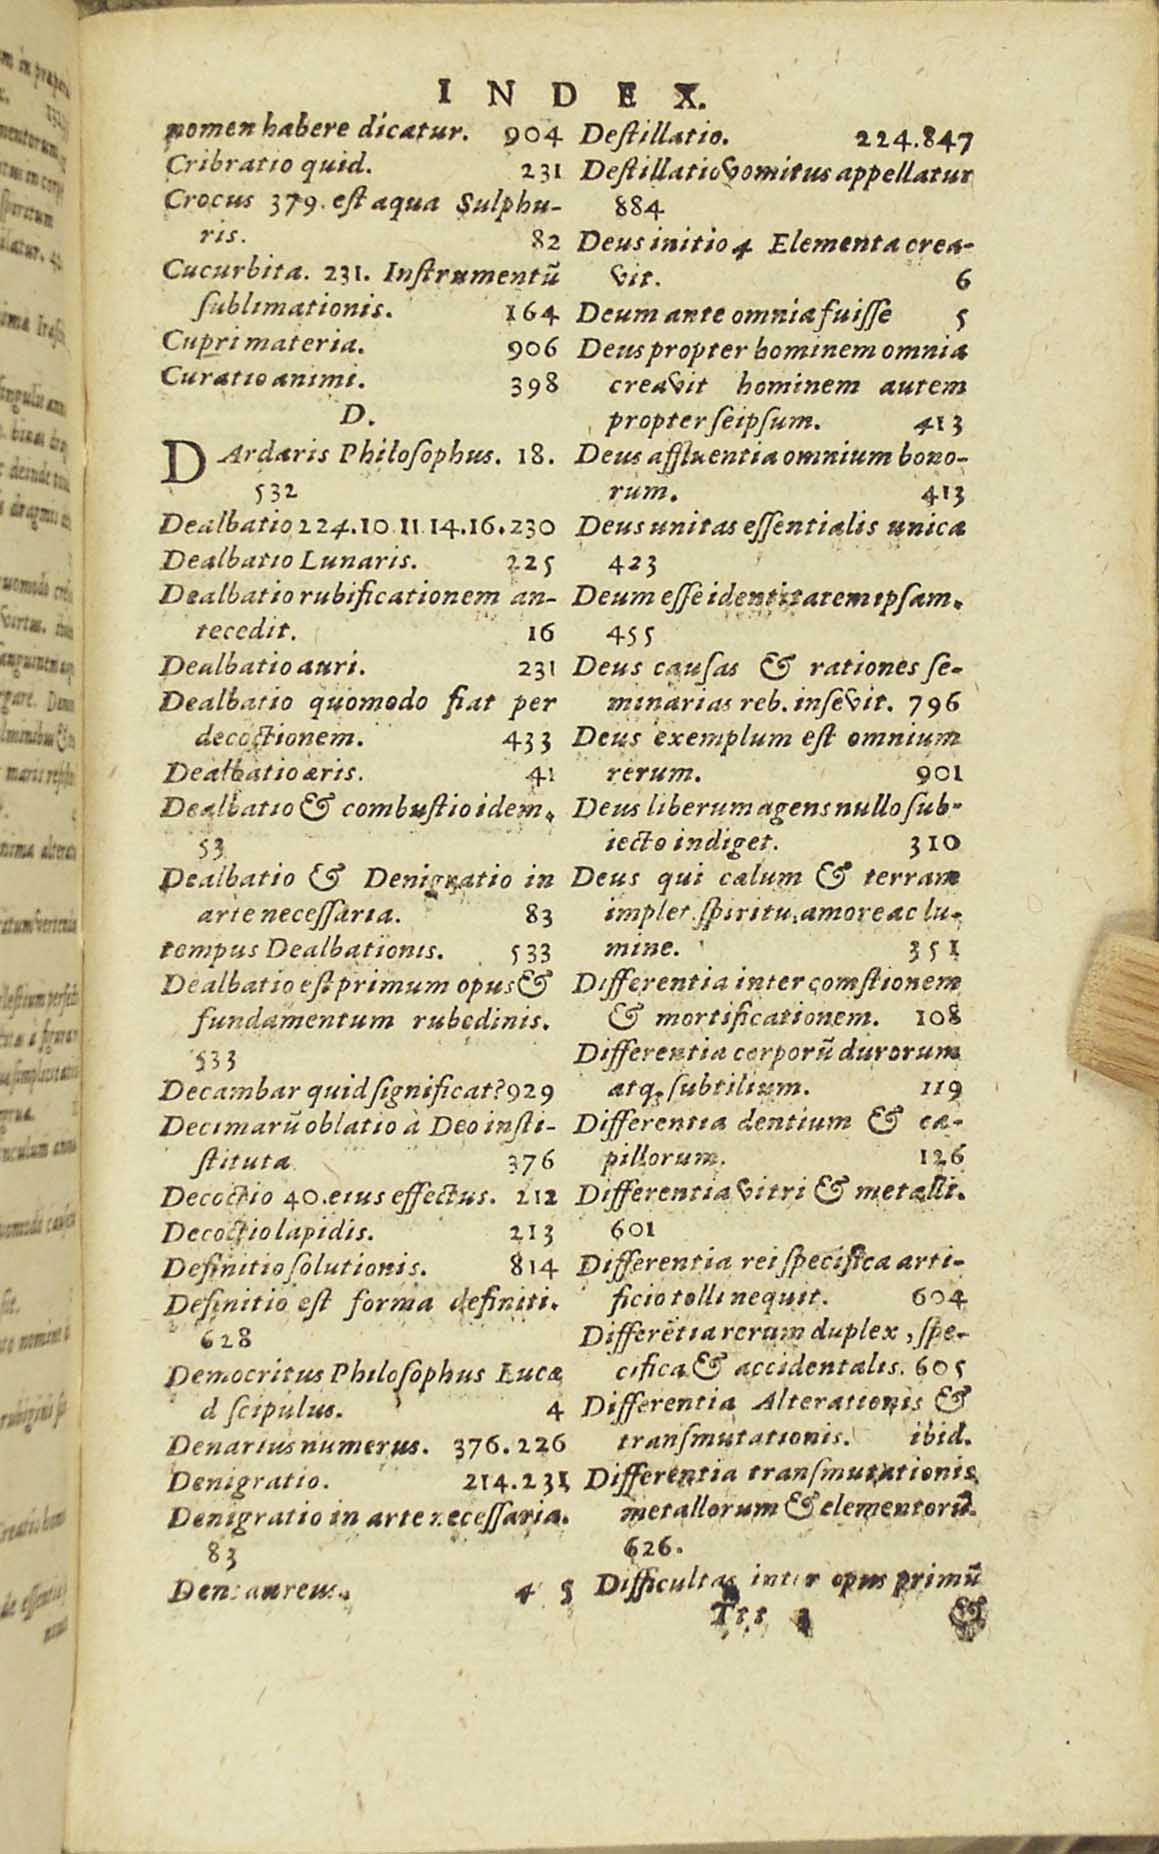 INDEX.
nomen habere dicatur. 904
Cribratio quid. 231
Crocus 379. est aqua Sulphu-
ris. 82
Cucurbita. 231. Instrumentū
sublimationis. 164
Cupri materia. 906
Curatio animi. 398
D.
DArdaris Philosophus. 18.
532
Dealbatio 224.10 11 14.16.230
Dealbatio Lunaris. 225
Dealbatio rubificationem an-
tecedit. 16
Dealbatio auri. 231
Dealbatio quomodo fiat per
decoctionem. 433
Dealbatio æris. 41
Dealbatio & combustio idem.
53
Dealbatio & Denigratio in
arte necessaria. 83
tempus Dealbationis. 533
Dealbatio est primum opus &
fundamentum rubedinis.
533
Decambar quid significat? 929
Decimarū oblatio à Deo insti-
stituta 376
Decoctio 40. eius effectus. 212
Decoctio lapidis. 213
Definitio solutionis. 814
Definitio est forma definiti.
628
Democritus Philosophus Lucæ
d scipulus. 4
Denarius numerus. 376.226
Denigratio. 214.231
Denigratio in arte necessaria.
83
Dens aureus. 4 5
Destillatio. 224.847
Destillatio vomitus appellatur
884
Deus initio 4 Elementa crea-
vit. 6
Deum ante omnia fuisse 5
Deus propter hominem omnia
creavit hominem autem
propter seipsum. 413
Deus affluentia omnium bono-
rum. 413
Deus unitas essentialis unica
423
Deum esse identitatem ipsam.
455
Deus causas & rationes se-
minarias reb. insevit. 796
Deus exemplum est omnium
rerum. 901
Deus liberum agens nullo sub-
iecto indiget. 310
Deus qui cælum & terram
implet spiritu, amore ac lu-
mine. 351
Differentia inter comstionem
& mortificationem. 108
Differentia corporū durorum
atq; subtilium. 119
Differentia dentium & ca-
pillorum. 126
Differentia vitri & metalli.
601
Differentia rei specifica arti-
ficio tolli nequit. 604
Differētia rerum duplex, spe-
cifica & accidentalis. 605
Differentia Alterationis &
transmutationis. ibid.
Differentia transmutationis
metallorum & elementorū.
626.
Difficultas inter opus primū
Ttt &